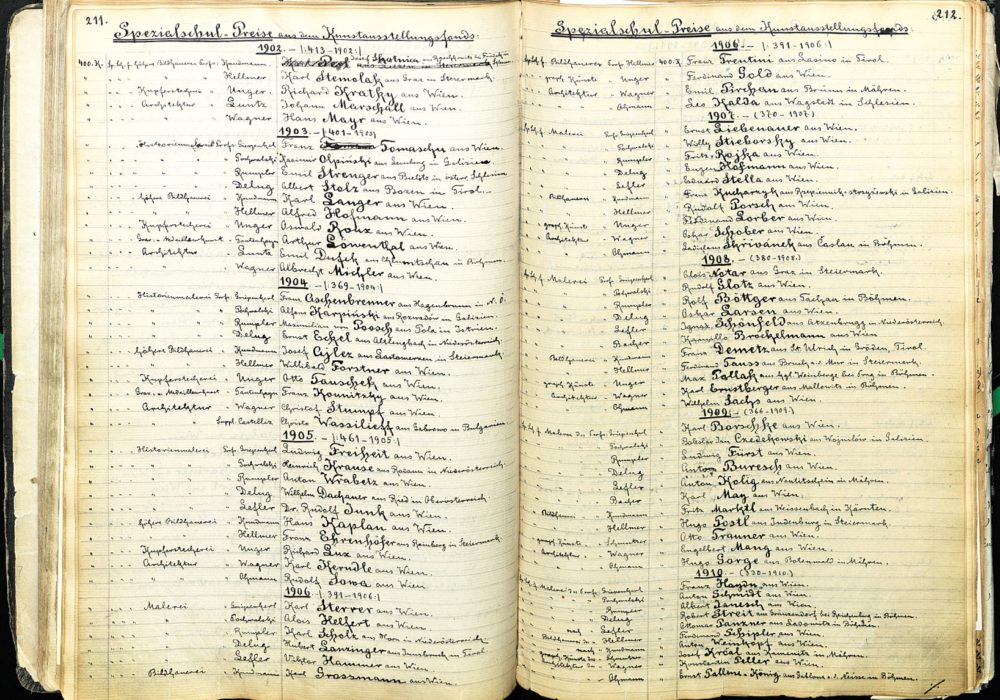 211.
Spezialschul-Preise aus dem Kunstausstellungsfonds:
1902. – |:413–1902:|
400.K. Spl.sch. f. höhere Bildhauerei Prof. Kundmann. Josef Skatnica
" " " " Hellmer Karl Stemolak aus Graz in Steiermark.
" " Kupferstecherei " Unger. Richard Kratky aus Wien.
" " Architektur " Luntz Johann Marschall aus Wien.
" " " " Wagner Hans Mayr aus Wien.
1903. – |:401–1903|
" " Historienmalerei Prof. Griepenkerl Franz Tomaschu aus Wien.
" " " " Pochwalski Kasimir Olpinski aus Lemberg in Galizien
" " " " Rumpler Emil Strenger aus Bielitz in österr. Schlesien
" " " " Delug Albert Stolz aus Bozen in Tirol.–
" " höhere Bildhauerei " Kundmann Karl Langer aus Wien.
" " " " Hellmer Alfred Hofmann aus Wien.
" " Kupferstecherei " Unger Oswald Roux aus Wien.
" " Grav. u. Medailleurkunst " Tautenhayn Arthur Löwental aus Wien.
" " Architektur " Luntz Emil Dufek aus in Böhmen.
" " " " Wagner Albrecht Michler aus Wien.
1904. – |:369–1904:|
" " Historienmalerei Prof. Griepenkerl Franz Aschenbrenner aus Hagenbrunn in N.Ö.
" " " " Pochwalski Alfons Karpiński aus Rozwadów in Galizien.
" " " " Rumpler Maximilian von Poosch aus Pola in Istrien.
" " " " Delug Ernst Eckel aus Altlengbach in Niederösterreich.
" " höhere Bildhauerei " Kundmann Josef Ajlez aus in Steiermark.
" " " " Hellmer Willibald Forstner aus Wien.
" " Kupferstecherei " Unger Otto Tauschek aus Wien.
" " Grav. u. Medailleurkunst " Tautenhayn Franz Kounitzky aus Wien.
" " Architektur " Wagner Christof Stumpf aus Wien
" " " Suppl. Castelliz Christo Wassilieff aus Gabrowo in Bulgarien.
1905. – |:461–1905:|
" " Historienmalerei Prof. Griepenkerl Ludwig Freiheit aus Wien.
" " " " Pochwalski Heinrich Krause aus Rodaun in Niederösterreich.
" " " " Rumpler Anton Wrabetz aus Wien.
" " " " Delug Wilhelm Dachauer aus Ried in Oberösterreich.
" " " " Lefler Dr. Rudolf Junk aus Wien.
" " höhere Bildhauerei " Kundmann Hans Kaplan aus Wien.
" " " " Hellmer Franz Ehrenhöfer aus in Steiermark.
" " Kupferstecherei " Unger Richard Lux aus Wien.
" " Architektur " Wagner Karl Kerndle aus Wien.
" " " " Ohmann Rudolf Sowa aus Wien.
1906. |:391–1906:|
" " Malerei " Griepenkerl Karl Sterrer aus Wien.
" " " " Pochwalski Alois Helfert aus Wien.
" " " " Rumpler Karl Scholz aus Horn in Niederösterreich
" " " " Delug Hubert Lanzinger aus Innsbruck in Tirol
" " " " Lefler Viktor Hammer aus Wien.
" " Bildhauerei " Kundmann Karl Grossmann aus Wien.
212.
Spezialschul-Preise aus dem Kunstausstellungsfonds:
1906. – |:391–1906:|
Spl.sch. f. Bildhauerei Prof. Hellmer 400.K. Franz Trentini aus Lasino in Tirol.
" " graph. Künste " Unger " Ferdinand Gold aus Wien.
" " Architektur " Wagner " Emil Pirchan aus Brünn in Mähren.
" " " " Ohmann " Leo Kalda aus Wagstadt in Schlesien.
1907. – (370–1907)
Spl.sch. f. Malerei Prof. Griepenkerl " Ernst Liebenauer aus Wien.
" " " " Pochwalski " Willy Stieborsky aus Wien.
" " " " Rumpler " Fritz Rojka aus Wien.
" " " " Delug " Eugen Hofmann aus Wien.
" " " " Lefler " Eduard Stella aus Wien.
" " Bildhauerei " Kundmann " Franz Kucharzyk aus in Galizien.
" " " " Hellmer " Rudolf Porsch aus Wien.
" " graph. Künste " Unger " Ferdinand Lorber aus Wien.
" " Architektur " Wagner " Oskar Schober aus Wien.
" " " " Ohmann " Ladislaus Skřivánek aus Časlau in Böhmen.
1908. – (380–1908.)
Spl.sch. f. Malerei Prof. Griepenkerl " Alois Notar aus Graz in Steiermark.
" " " " Pochwalski " Rudolf Glotz aus Wien.
" " " " Rumpler " Rolf Böttger aus Tachau in Böhmen.
" " " " Delug " Oskar Larsen aus Wien.
" " " " Lefler " Ignaz Schönfeld aus Atzenbrugg in Niederösterreich.
" " " " Bacher " Karmello Brockelmann aus Wien.
" " Bildhauerei " Kundmann " Franz Demetz aus St. Ulrich in Gröden, Tirol.
" " " " Hellmer " Ferdinand Tauss aus Bruck a. Mur in Steiermark.
" " graph. Künste " Unger " Max Pollak aus kgl. Weinberge bei Prag in Böhmen.
" " Architektur " Wagner " Karl Ernstberger aus Mallowitz in Böhmen.
" " " " Ohmann " Wilhelm Sachs aus Wien.
1909. – (366–1909.)
Spl.sch. f. Malerei des Prof. Griepenkerl " Karl Borschke aus Wien.
" " " " Pochwalski " Boleslaw Jan Czedekowski aus Wojnilów in Galizien.
" " " " Rumpler " Ludwig Fürst aus Wien.
" " " " Delug " Anton Buresch aus Wien.
" " " " Lefler " Anton Kolig aus Neutitschein in Mähren.
" " " " Bacher " Karl May aus Wien.
" " Bildhauerei " Kundmann " Fritz Marktl aus Weissenbach in Kärnten.
" " " " Hellmer " Hugo Postl aus Judenburg in Steiermark.
" " graph. Künste " Schmutzer " Otto Trauner aus Wien.
" " Architektur " Wagner " Engelbert Mang aus Wien.
" " " " Ohmann " Hugo Gorge aus Botenwald in Mähren.
1910. – (330–1910.)
Spl.sch. f. Malerei des Prof. Griepenkerl " Franz Haydn aus Wien.
" " " " Pochwalski " Anton Schmidt aus Wien.
" " " " Rumpler " Albert Janesch aus Wien.
" " " " Delug " Robert Streit aus Gränzendorf bei Reichenberg in Böhmen.
" " " nach " Lefler " Ottomar Panzner aus in Böhmen.
" " Bildhauerei des " Hellmer " Ferdinand Schipler aus Wien.
" " " nach " Kundmann " Anton Weinkopf aus Wien.
" " graph. Künste des " Schmutzer " Josef Krčál aus Kamenitz in Mähren.
" " Architektur des " Wagner " Konstantin Peller aus Wien.
" " " " Ohmann " Ernst Pallme-König aus Gablonz a. d. Neisse in Böhmen.